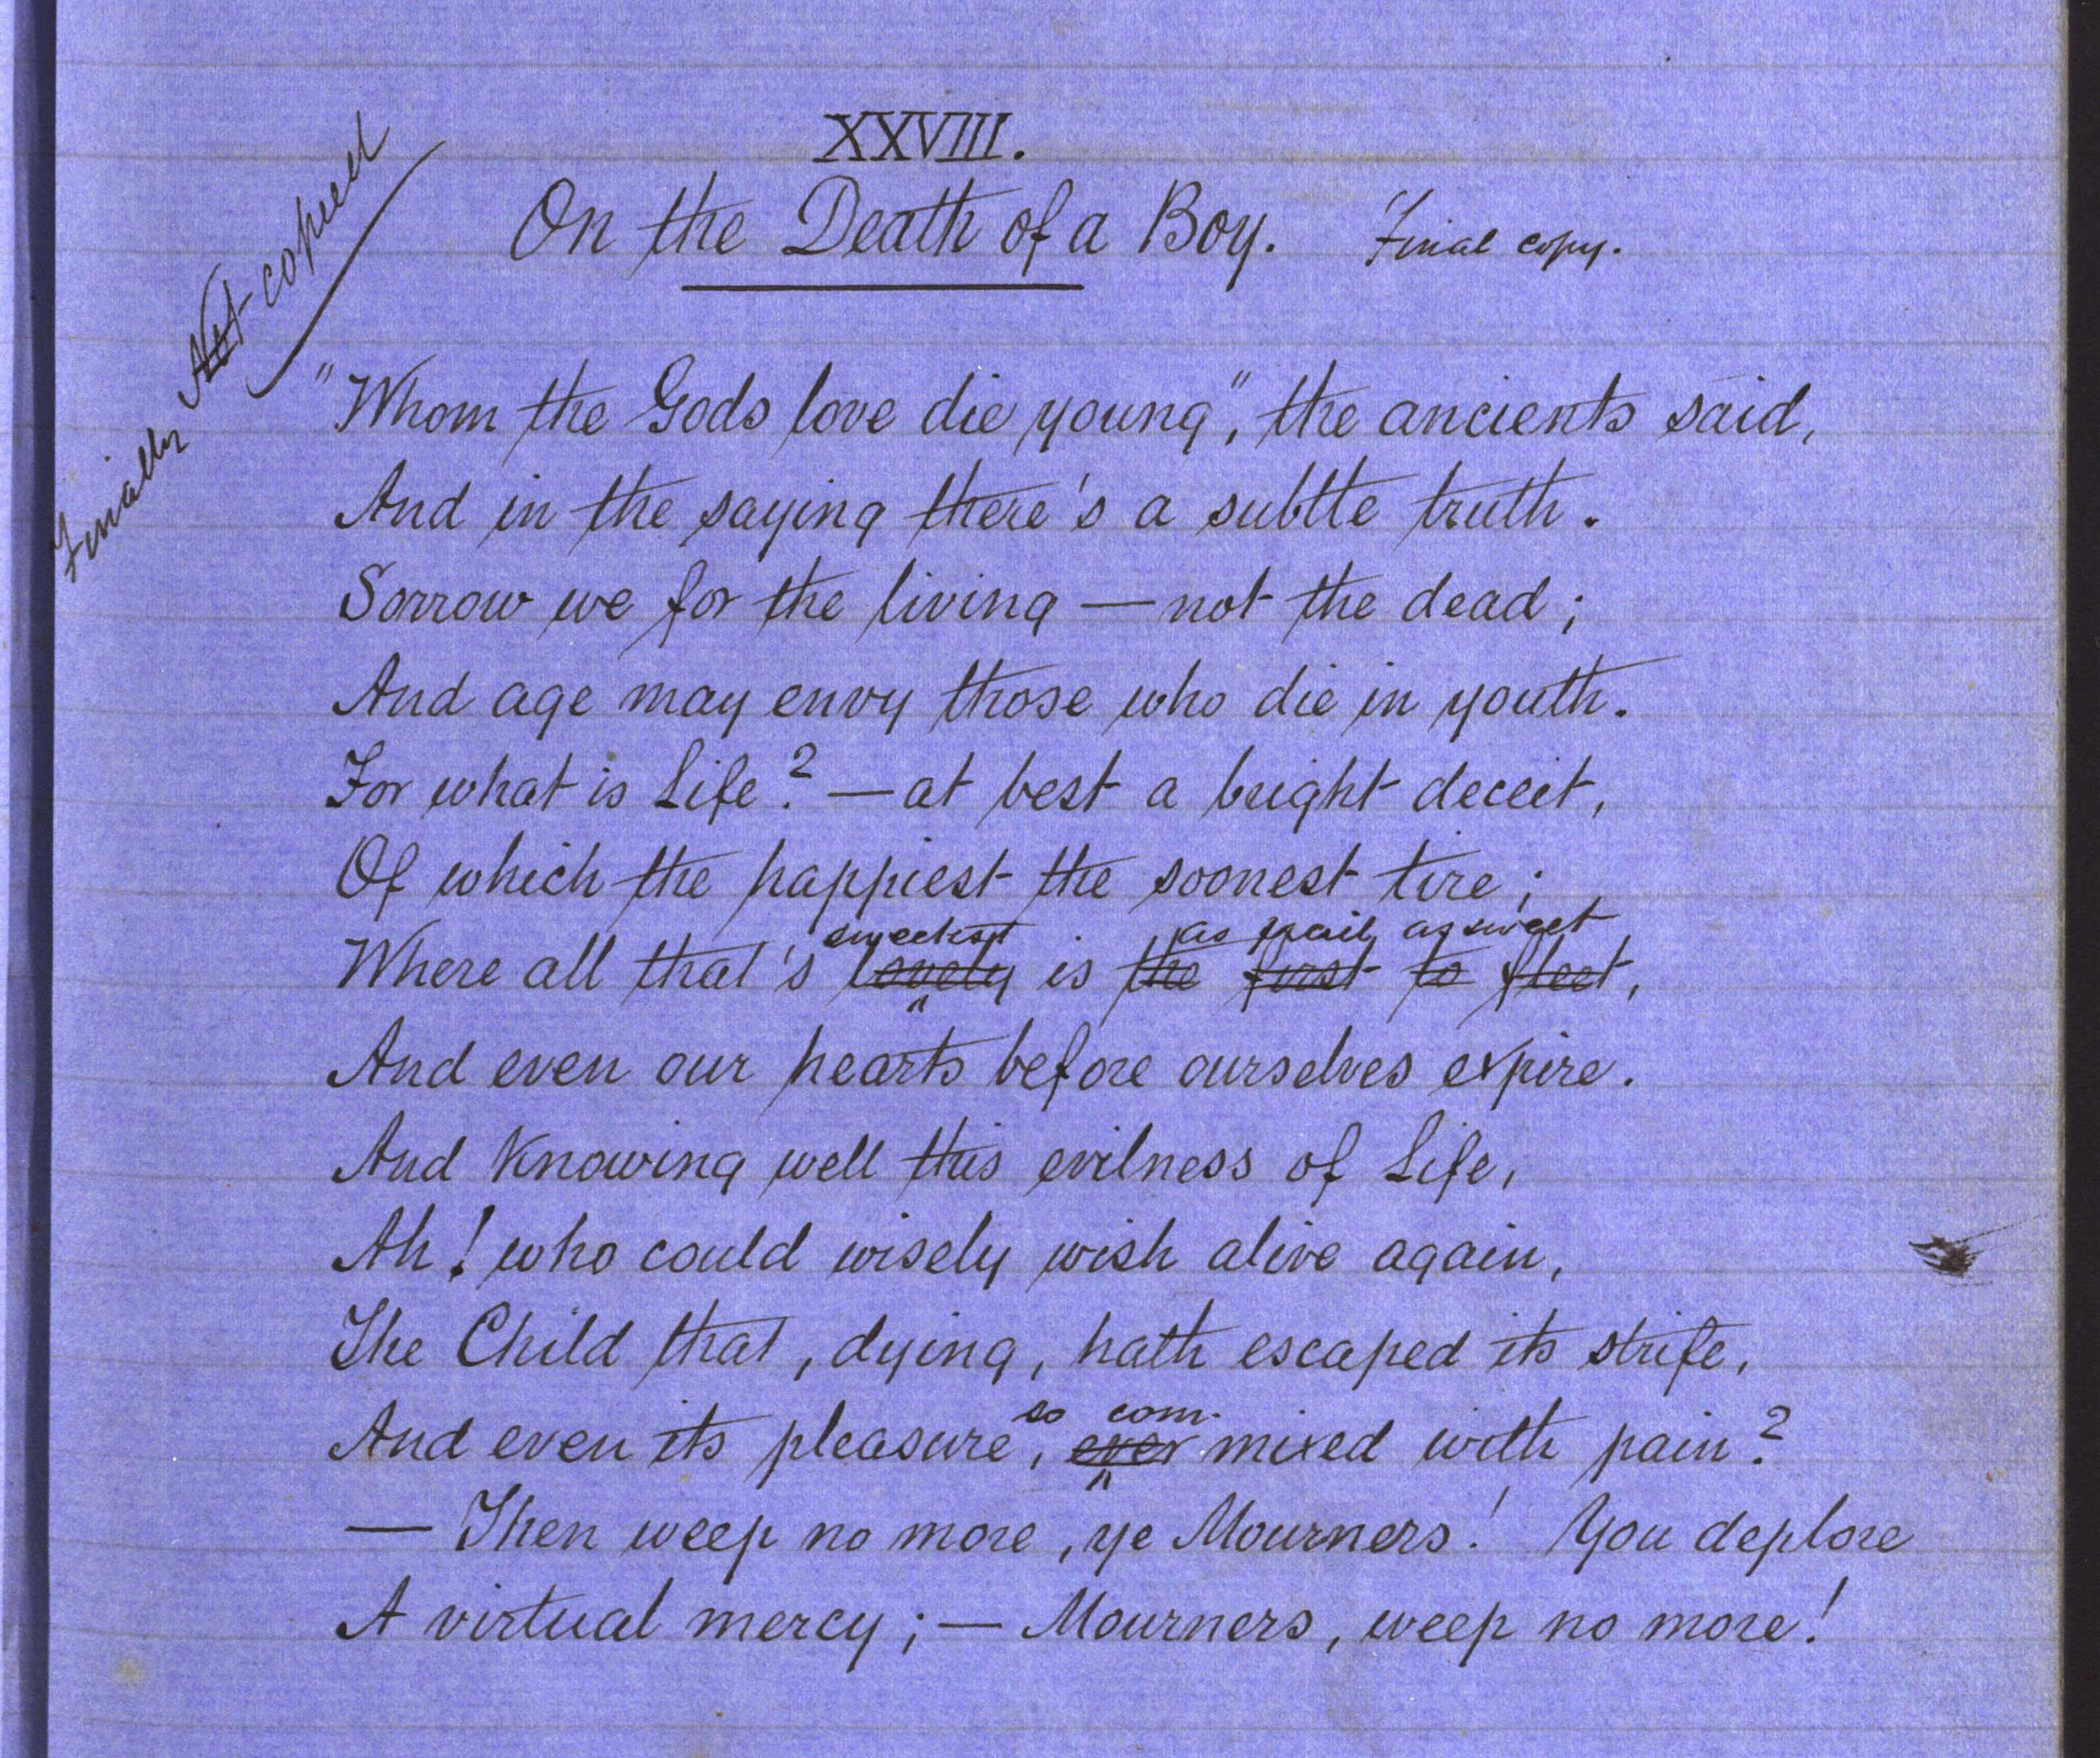 XXVIII.
On the Death of a Boy. Final copy.
Finally Not copied
"Whom the Gods love die young", the ancients said,
And in the saying there's a subtle truth.
Sorrow we for the living — not the dead;
And age may envy those who die in youth.
For what is Life? — at best a bright deceit,
Of which the happiest the soonest tire;
sweetest as frail as sweet
Where all that's lovely is the first to fleet,
And even our hearts before ourselves expire.
And knowing well this evilness of Life,
Ah! who could wisely wish alive again,
The Child that, dying, hath escaped its strife,
so com-
And even its pleasure, ever mixed with pain?
— Then weep no more, ye Mourners! You deplore
A virtual mercy; — Mourners, weep no more!